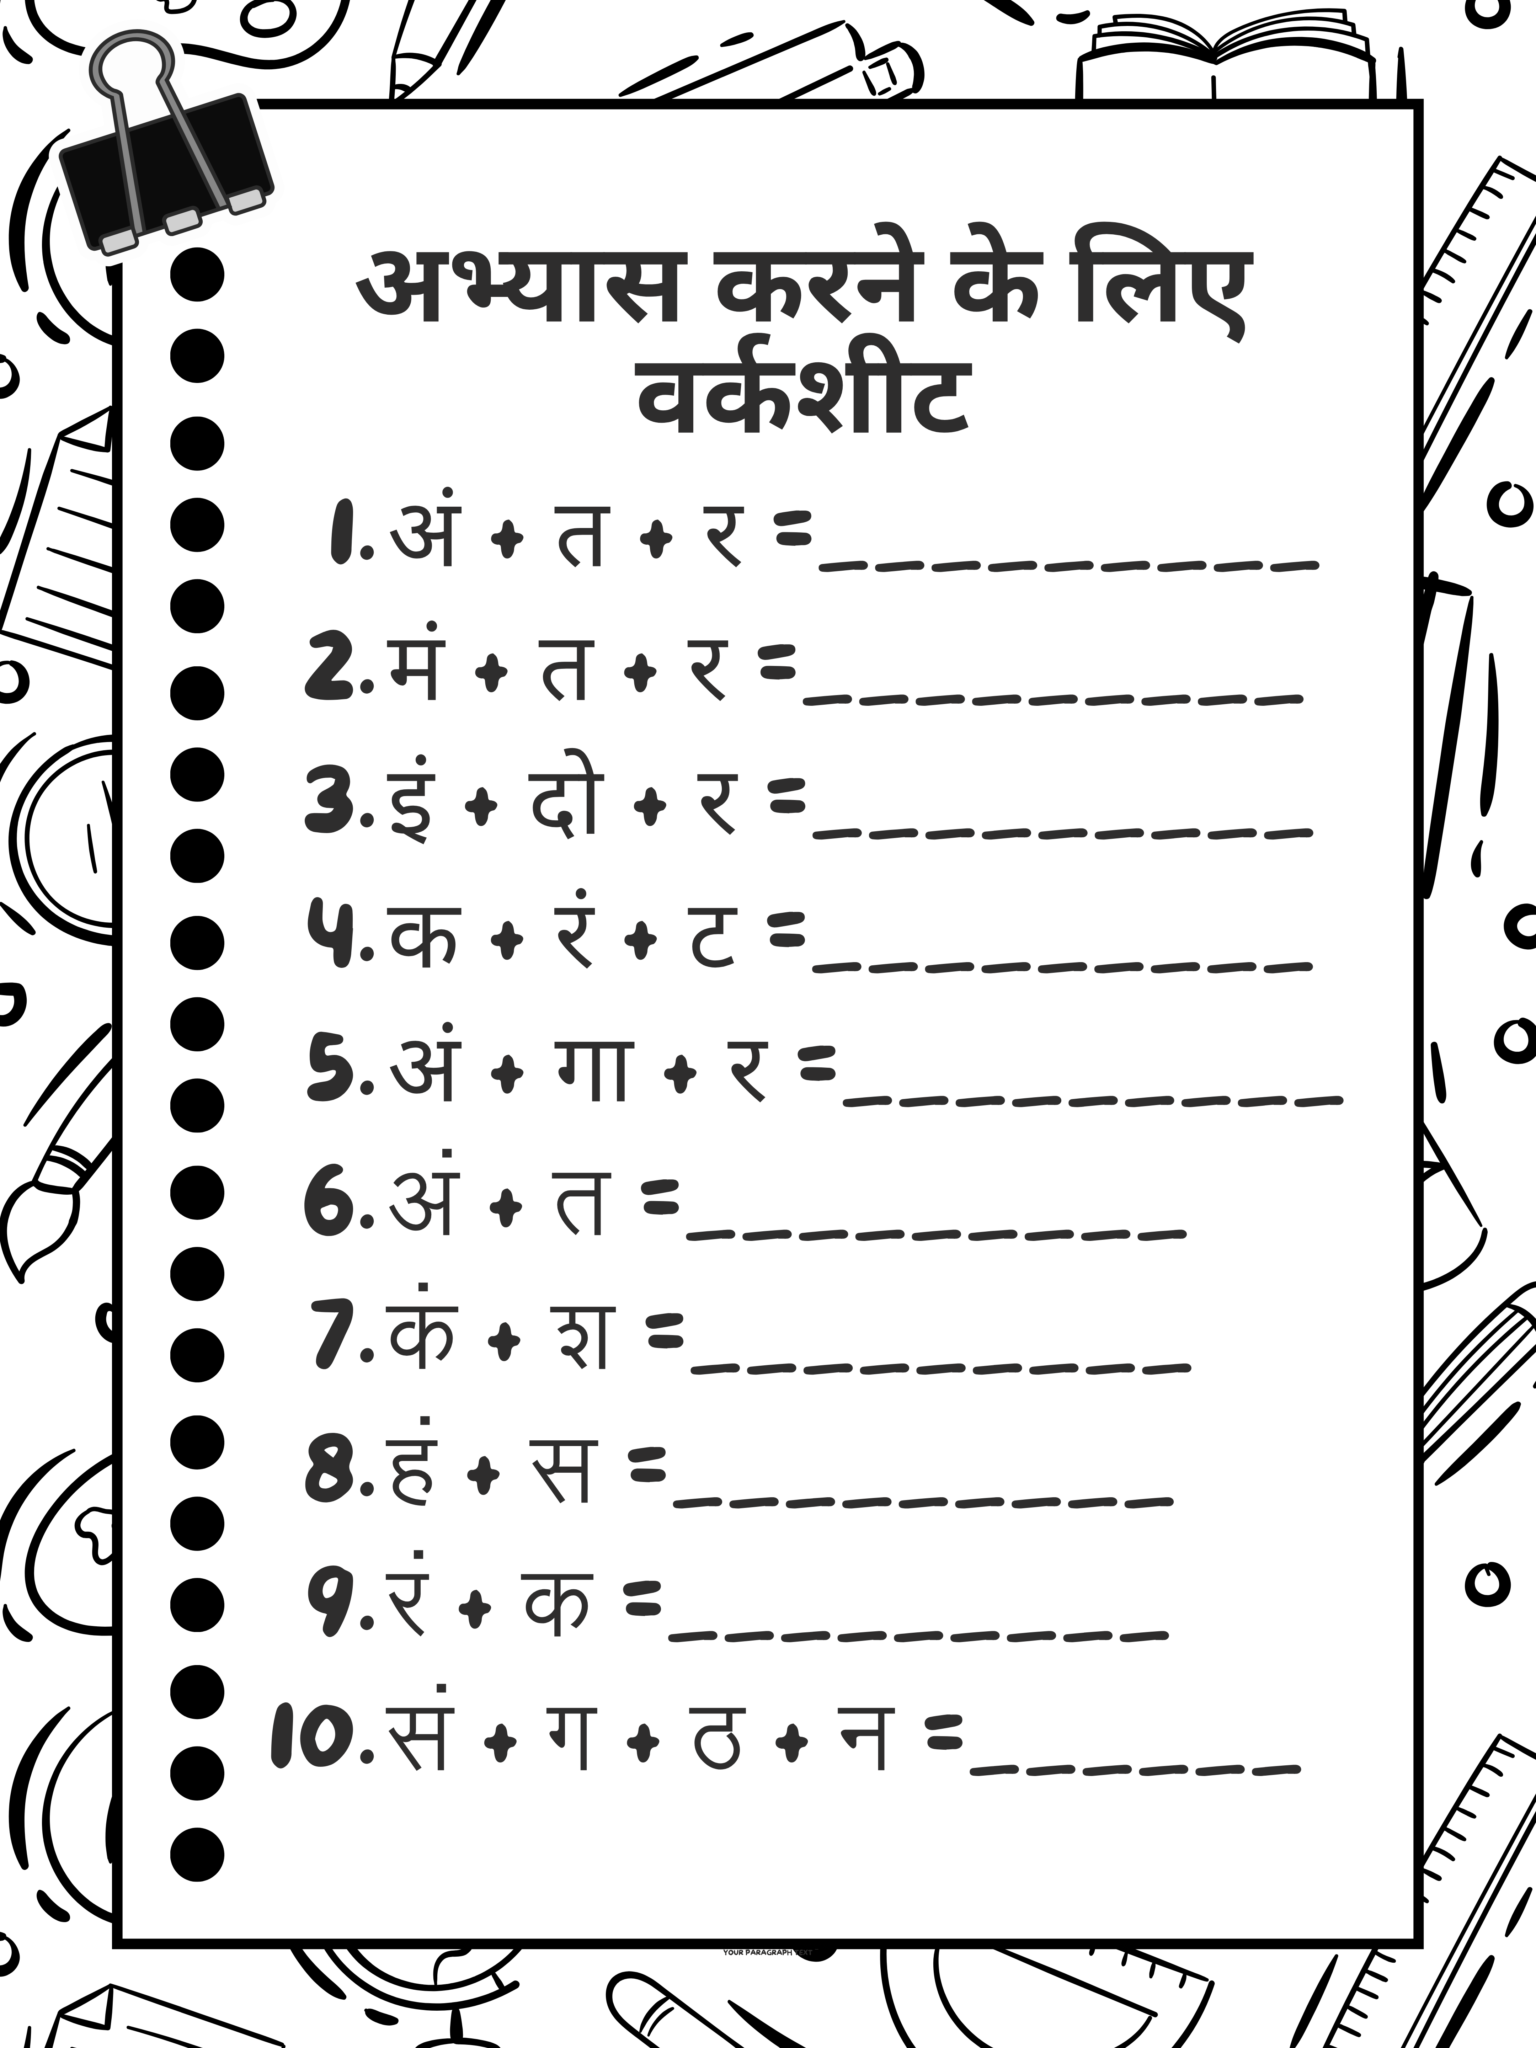 अभ्यास करने के लिए
वर्कशीट
1. अं + त + र =_________
2. मं + त + र =_________
3. इं + दो + र =_________
4. क + रं + ट =_________
5. अं + गा + र =_________
6. अं + त =_________
7. कं + श =_________
8. हं + स =_________
9. रं + क =_________
10. सं + ग + ठ + न =______
YOUR PARAGRAPH TEXT